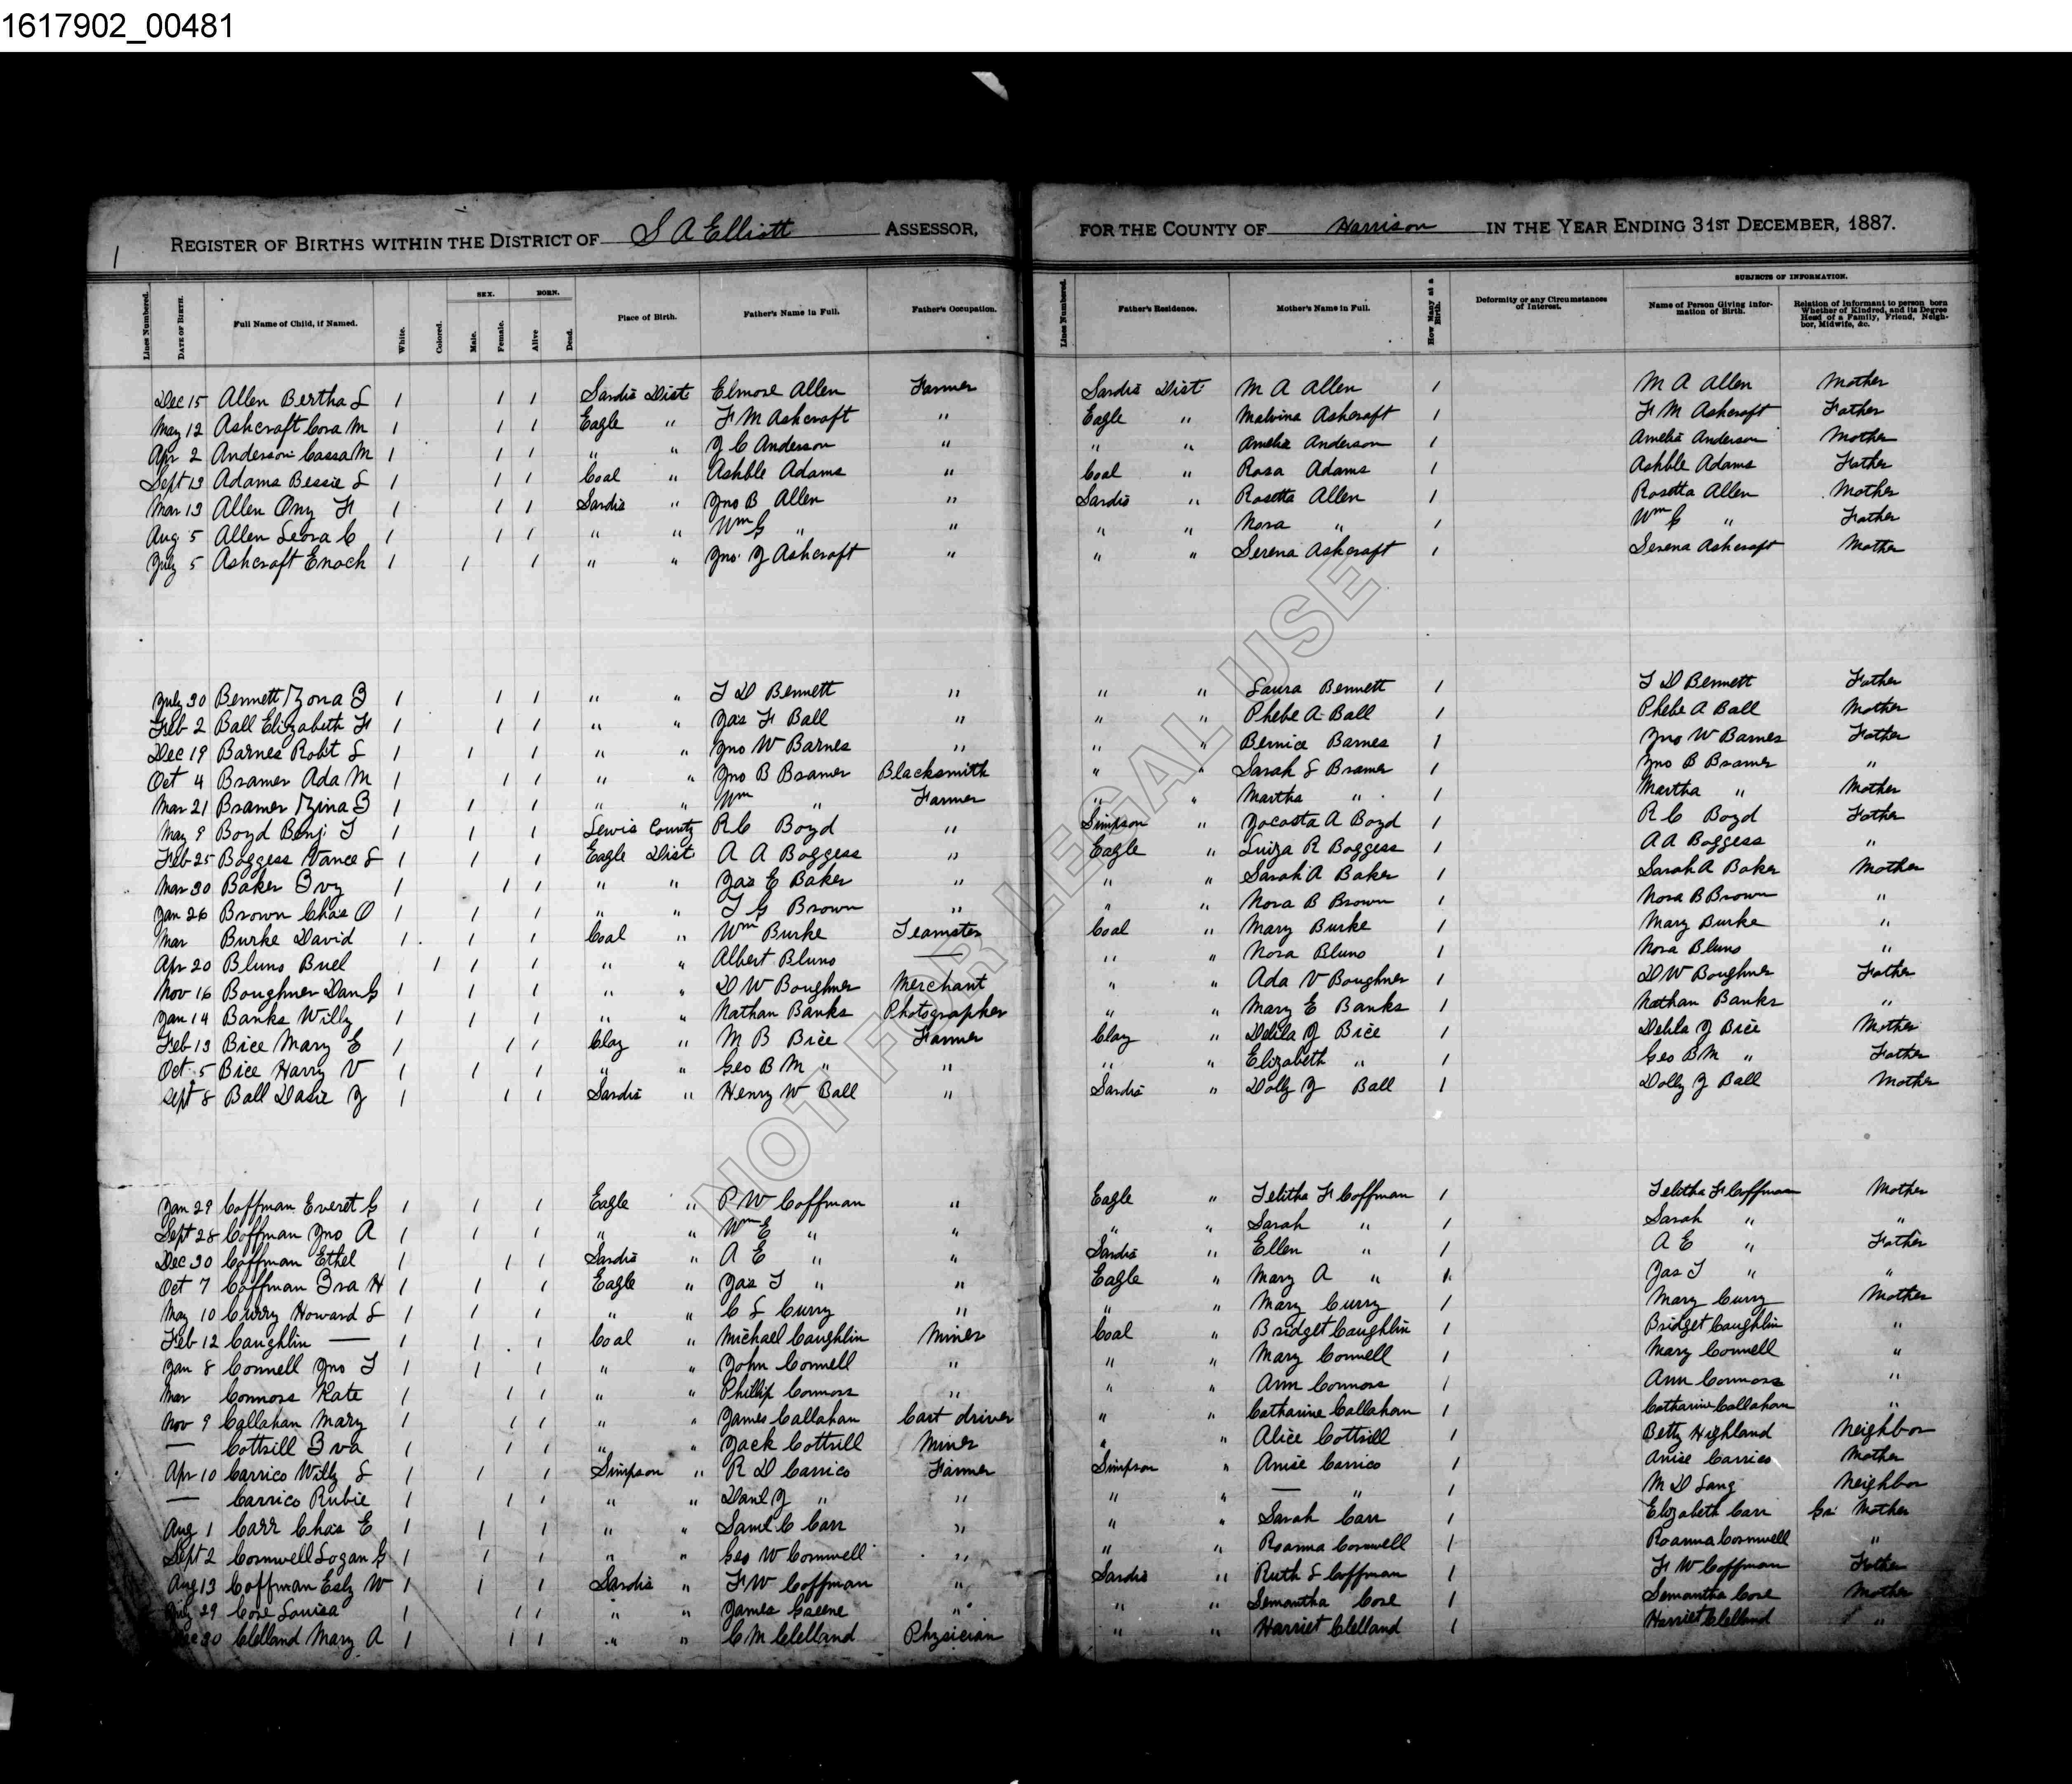 1617902_00481
1
REGISTER OF BIRTHS WITHIN THE DISTRICT OF S A Elliott ASSESSOR, FOR THE COUNTY OF Harrison IN THE YEAR ENDING 31ST DECEMBER, 1887.
Lines Numbered. DATE OF BIRTH. Full Name of Child, if Named. White. Colored. SEX. Male. Female. BORN. Alive Dead. Place of Birth. Father's Name in Full. Father's Occupation. Lines Numbered. Father's Residence. Mother's Name in Full. How Many at a Birth. Deformity or any Circumstances of Interest. SUBJECTS OF INFORMATION. Name of Person Giving Information of Birth. Relation of Informant to person born Whether of Kindred, and its Degree Head of a Family, Friend, Neighbor, Midwife, &c.
Dec 15 Allen Bertha L 1 1 1 Sardis Dist Elmore Allen Farmer Sardis Dist M A Allen 1 M A Allen Mother
May 12 Ashcraft Cora M 1 1 1 Eagle " F M Ashcraft " Eagle " Malvina Ashcraft 1 F M Ashcraft Father
Apr 2 Anderson Cassa M 1 1 1 " " J C Anderson " " " Amelia Anderson 1 Amelia Anderson Mother
Sept 13 Adams Bessie L 1 1 1 Coal " Ashble Adams " Coal " Rosa Adams 1 Ashble Adams Father
Mar 13 Allen Ony F 1 1 1 Sardis " Jno B Allen " Sardis " Rosetta Allen 1 Rosetta Allen Mother
Aug 5 Allen Leora C 1 1 1 " " Wm G " " " " Nora " 1 Wm G " Father
July 5 Ashcraft Enoch 1 1 1 " " Jno. J Ashcraft " " " Serena Ashcraft 1 Serena Ashcraft Mother
July 30 Bennett Zona B 1 1 1 " " T D Bennett " " " Laura Bennett 1 T D Bennett Father
Feb 2 Ball Elizabeth F 1 1 1 " " Jas F Ball " " " Phebe A Ball 1 Phebe A Ball Mother
Dec 19 Barnes Robt L 1 1 1 " " Jno W Barnes " " " Bernice Barnes 1 Jno W Barnes Father
Oct 4 Bramer Ada M 1 1 1 " " Jno B Bramer Blacksmith " " Sarah L Bramer 1 Jno B Bramer "
Mar 21 Bramer Zina B 1 1 1 " " Wm " Farmer " " Martha " 1 Martha " Mother
May 9 Boyd Benj T 1 1 1 Lewis County R C Boyd " Simpson " Jocasta A Boyd 1 R C Boyd Father
Feb 25 Boggess Vance L 1 1 1 Eagle Dist A A Boggess " Eagle " Luiza R Boggess 1 A A Boggess "
Mar 30 Baker Ivy 1 1 1 " " Jas E Baker " " " Sarah A Baker 1 Sarah A Baker Mother
Jan 26 Brown Chas O 1 1 1 " " T G Brown " " " Nora B Brown 1 Nora B Brown "
Mar Burke David 1 1 1 Coal " Wm Burke Teamster Coal " Mary Burke 1 Mary Burke "
Apr 20 Bluns Buel 1 1 1 " " Albert Bluns — " " Nora Bluns 1 Nora Bluns "
Nov 16 Boughner Dan G 1 1 1 " " D W Boughner Merchant " " Ada V Boughner 1 D W Boughner Father
Jan 14 Banks Willy 1 1 1 " " Nathan Banks Photographer " " Mary E Banks 1 Nathan Banks "
Feb 13 Bice Mary E 1 1 1 Clay " M B Bice Farmer Clay " Delila J Bice 1 Delila J Bice Mother
Oct 5 Bice Harry V 1 1 1 " " Geo B M " " " " Elizabeth " 1 Geo B M " Father
Sept 8 Ball Dasie J 1 1 1 Sardis " Henry W Ball " Sardis " Dolly J Ball 1 Dolly J Ball Mother
Jan 29 Coffman Everet G 1 1 1 Eagle " P W Coffman " Eagle " Telitha F Coffman 1 Telitha F Coffman Mother
Sept 28 Coffman Jno A 1 1 1 " " Wm E " " " " Sarah " 1 Sarah " "
Dec 30 Coffman Ethel 1 1 1 Sardis " A E " " Sardis " Ellen " 1 A E " Father
Oct 7 Coffman Ira H 1 1 1 Eagle " Jas T " " Eagle " Mary A " 1 Jas T " "
May 10 Curry Howard L 1 1 1 " " C L Curry " " " Mary Curry 1 Mary Curry Mother
Feb 12 Caughlin — 1 1 1 Coal " Michael Caughlin Miner Coal " Bridget Caughlin 1 Bridget Caughlin "
Jan 8 Connell Jno T 1 1 1 " " John Connell " " " Mary Connell 1 Mary Connell "
Mar Connors Kate 1 1 1 " " Phillip Connors " " " Ann Connors 1 Ann Connors "
Nov 9 Callahan Mary 1 1 1 " " James Callahan Cart driver " " Catharine Callahan 1 Catharine Callahan "
— Cottrill Iva 1 1 1 " " Jack Cottrill Miner " " Alice Cottrill 1 Betty Highland Neighbor
Apr 10 Carrico Willy L 1 1 1 Simpson " R D Carrico Farmer Simpson " Anise Carrico 1 Anise Carrico Mother
— Carrico Rubie 1 1 1 " " Danl J " " " " — " 1 M D Lang Neighbor
Aug 1 Carr Chas E 1 1 1 " " Saml C Carr " " " Sarah Carr 1 Elizabeth Carr Gr. Mother
Sept 2 Cornwell Logan G 1 1 1 " " Geo W Cornwell " " " Roanna Cornwell 1 Roanna Cornwell "
Aug 13 Coffman Esly W 1 1 1 Sardis " F W Coffman " Sardis " Ruth L Coffman 1 F W Coffman Father
July 29 Core Louisa 1 1 1 " " James Greene " " " Semantha Core 1 Semantha Core Mother
30 Clelland Mary A 1 1 1 " " C M Clelland Physician " " Harriet Clelland 1 Harriet Clelland "
NOT FOR LEGAL USE